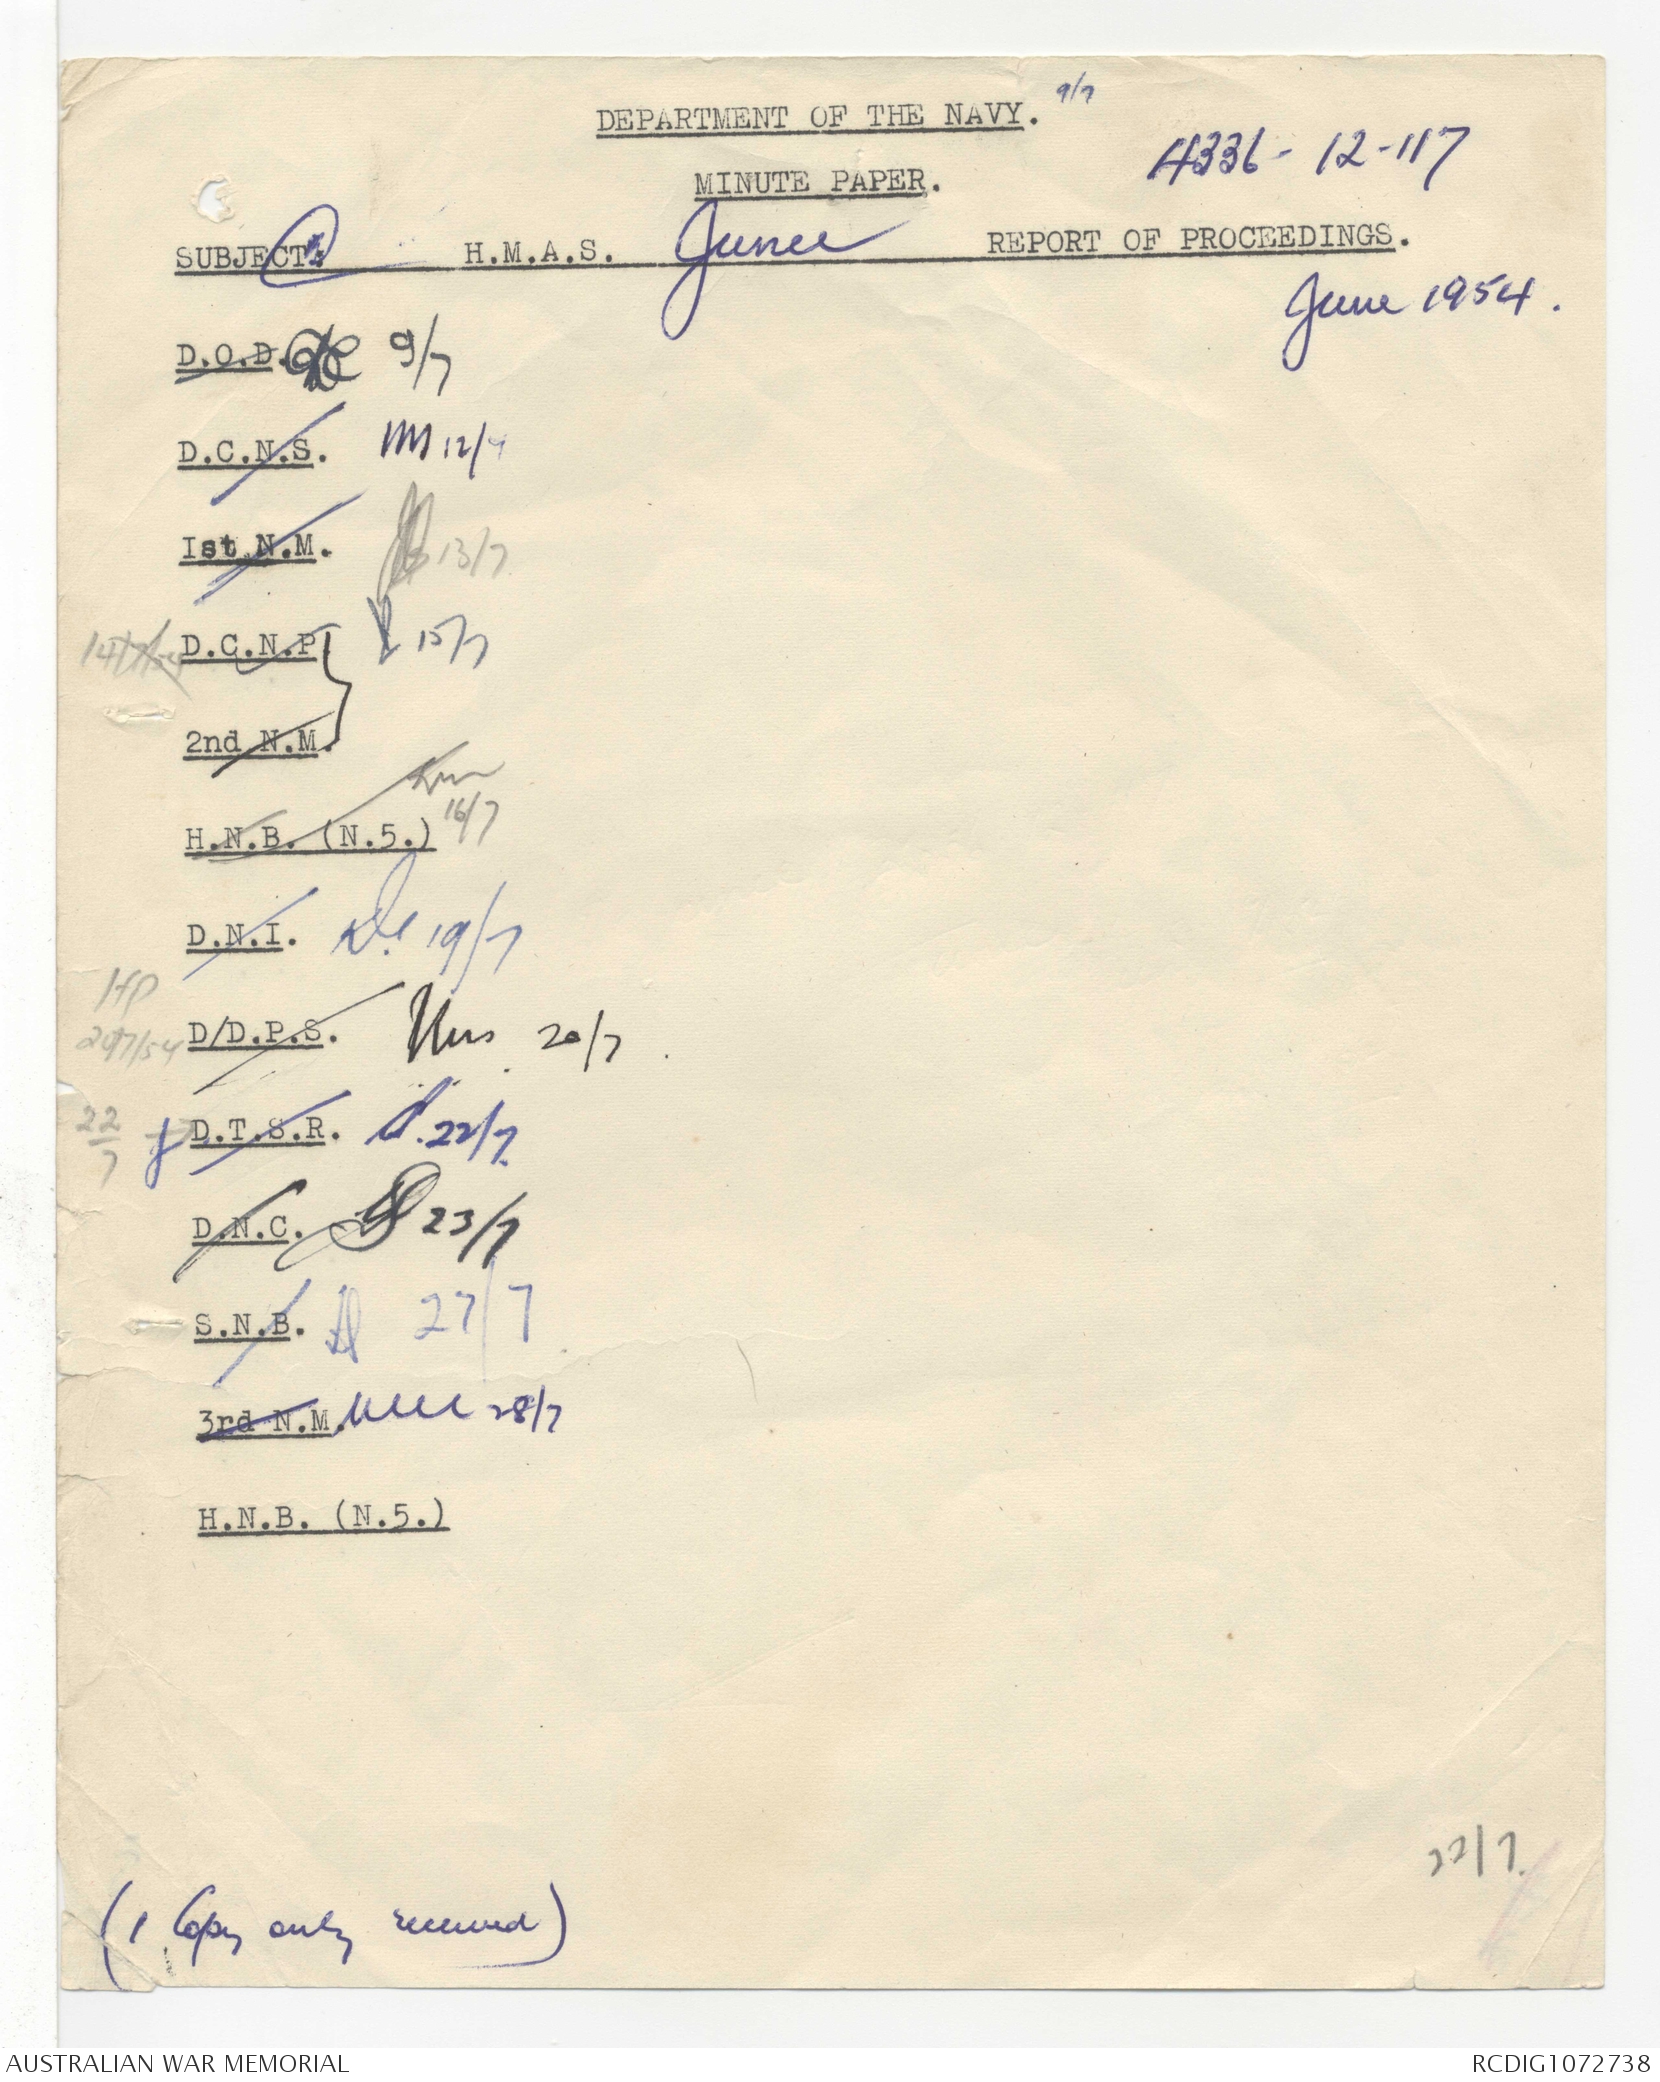 9/7
DEPARTMENT OF THE NAVY.
4336-12-117
MINUTE PAPER.
SUBJECT: H.M.A.S. Junee REPORT OF PROCEEDINGS.
June 1954.
D.O.D. 9/7
D.C.N.S. 12/7
1st N.M. 13/7
D.C.N.P. 15/7
2nd N.M.
H.N.B. (N.5.) 16/7
D.N.I. 19/7
20/7/54 D/D.P.S. 20/7
22/7 D.T.S.R. 22/7
D.N.C. 23/7
S.N.B. 27/7
3rd N.M. 28/7
H.N.B. (N.5.)
22/7.
(1 Copy only received)
AUSTRALIAN WAR MEMORIAL RCDIG1072738